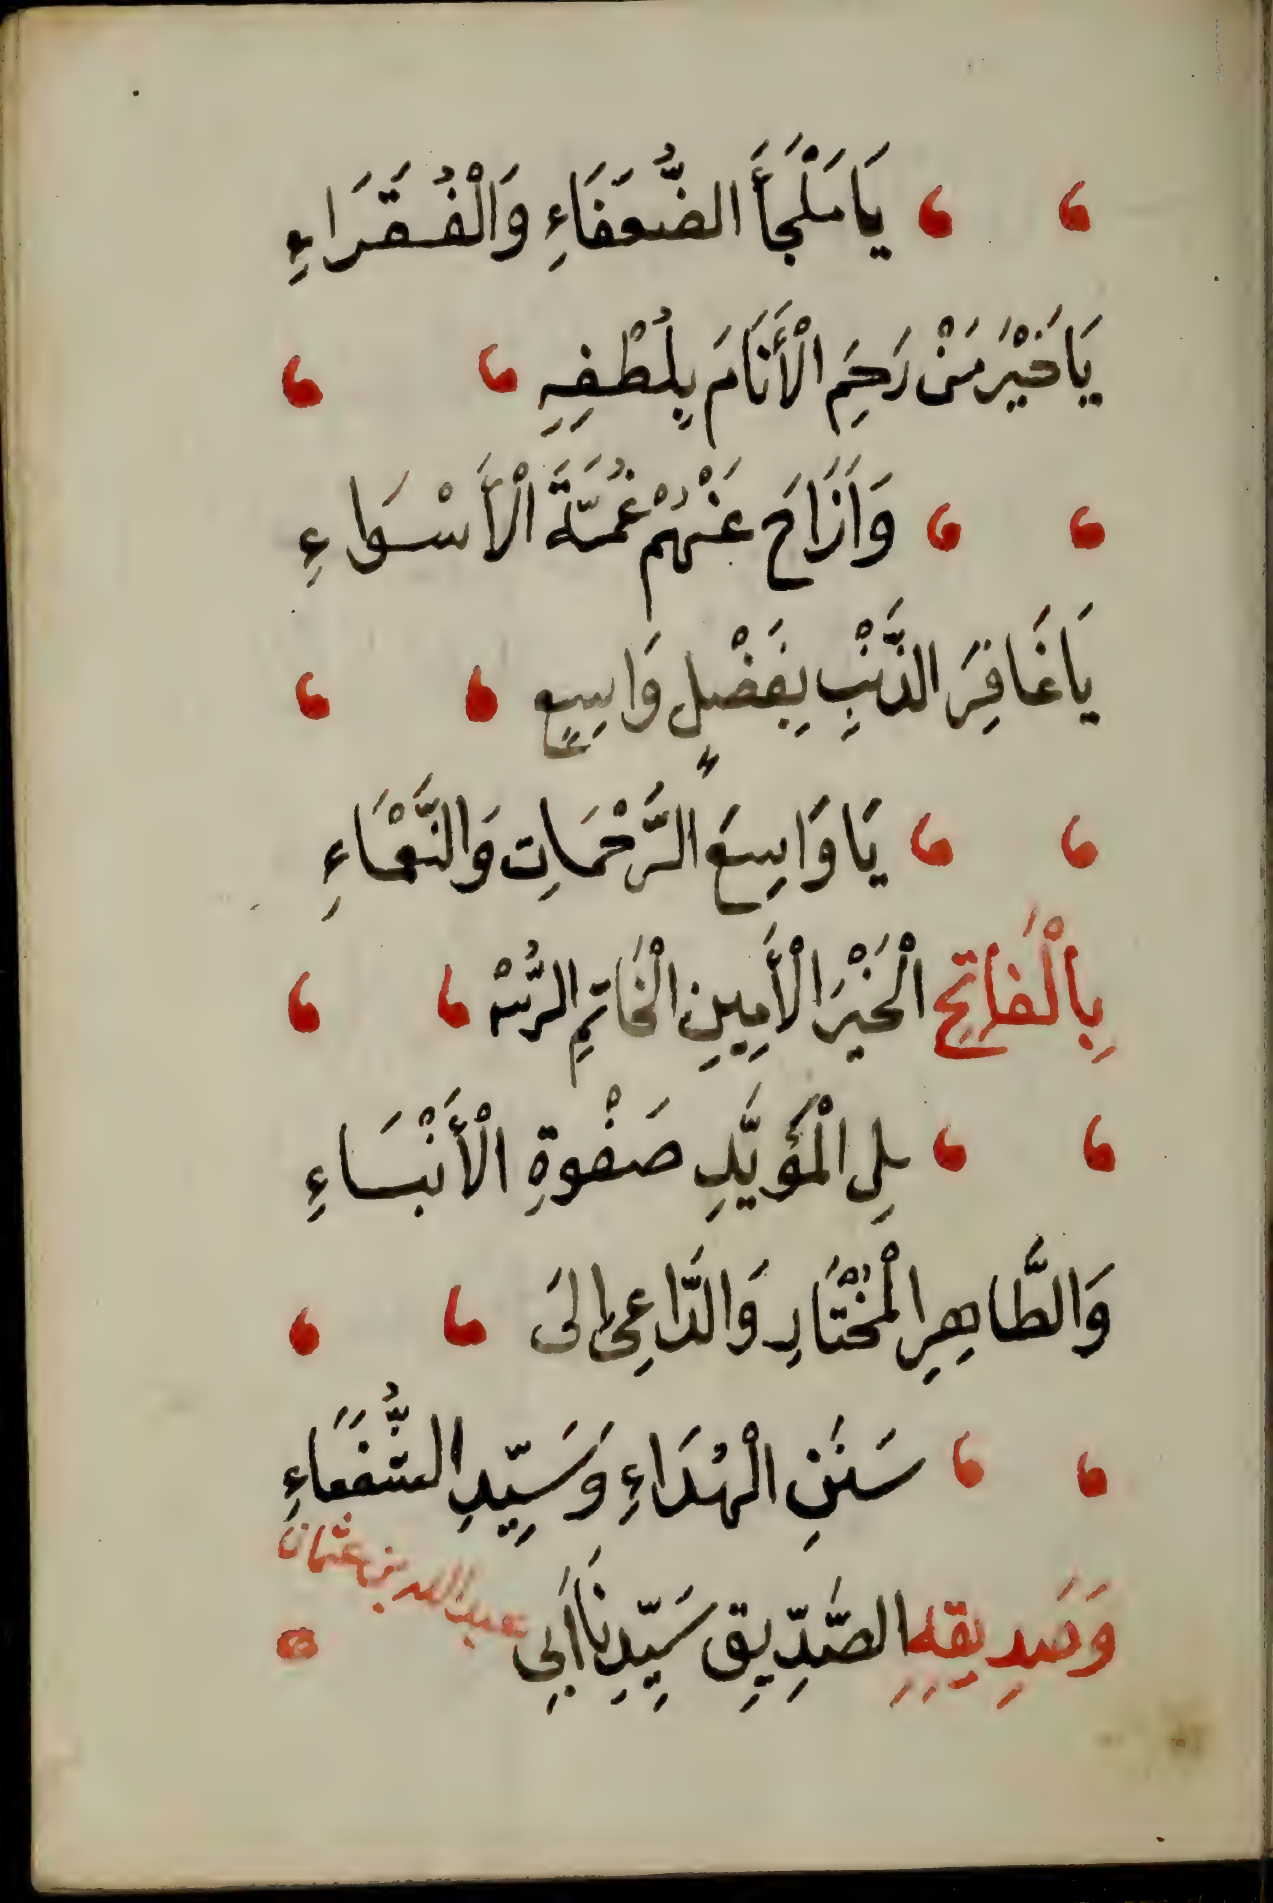 يَا مَلْجَأَ الضُّعَفَاءِ وَالْفُقَرَاءِ
يَا خَيْرَ مَنْ رَحِمَ الْأَنَامَ بِلُطْفِهِ
وَأَزَاحَ عَنْهُمْ غُمَّةَ الْأَسْوَاءِ
يَا غَافِرَ الذَّنْبِ بِفَضْلٍ وَاسِعٍ
يَا وَاسِعَ الرَّحْمَاتِ وَالنَّعْمَاءِ
بِالْفَاتِحِ الْخَيْرِ الْأَمِينِ الْخَاتِمِ الرُّسْ
لِ الْمُؤَيَّدِ صَفْوَةِ الْأَنْبَاءِ
وَالطَّاهِرِ الْمُخْتَارِ وَالدَّاعِي إِلَى
سَنَنِ الْهُدَاءِ وَسَيِّدِ الشُّفَعَاءِ
وَصَدِيقِهِ الصِّدِّيقِ سَيِّدِنَا أَبِي
عبد الله بن عثمان